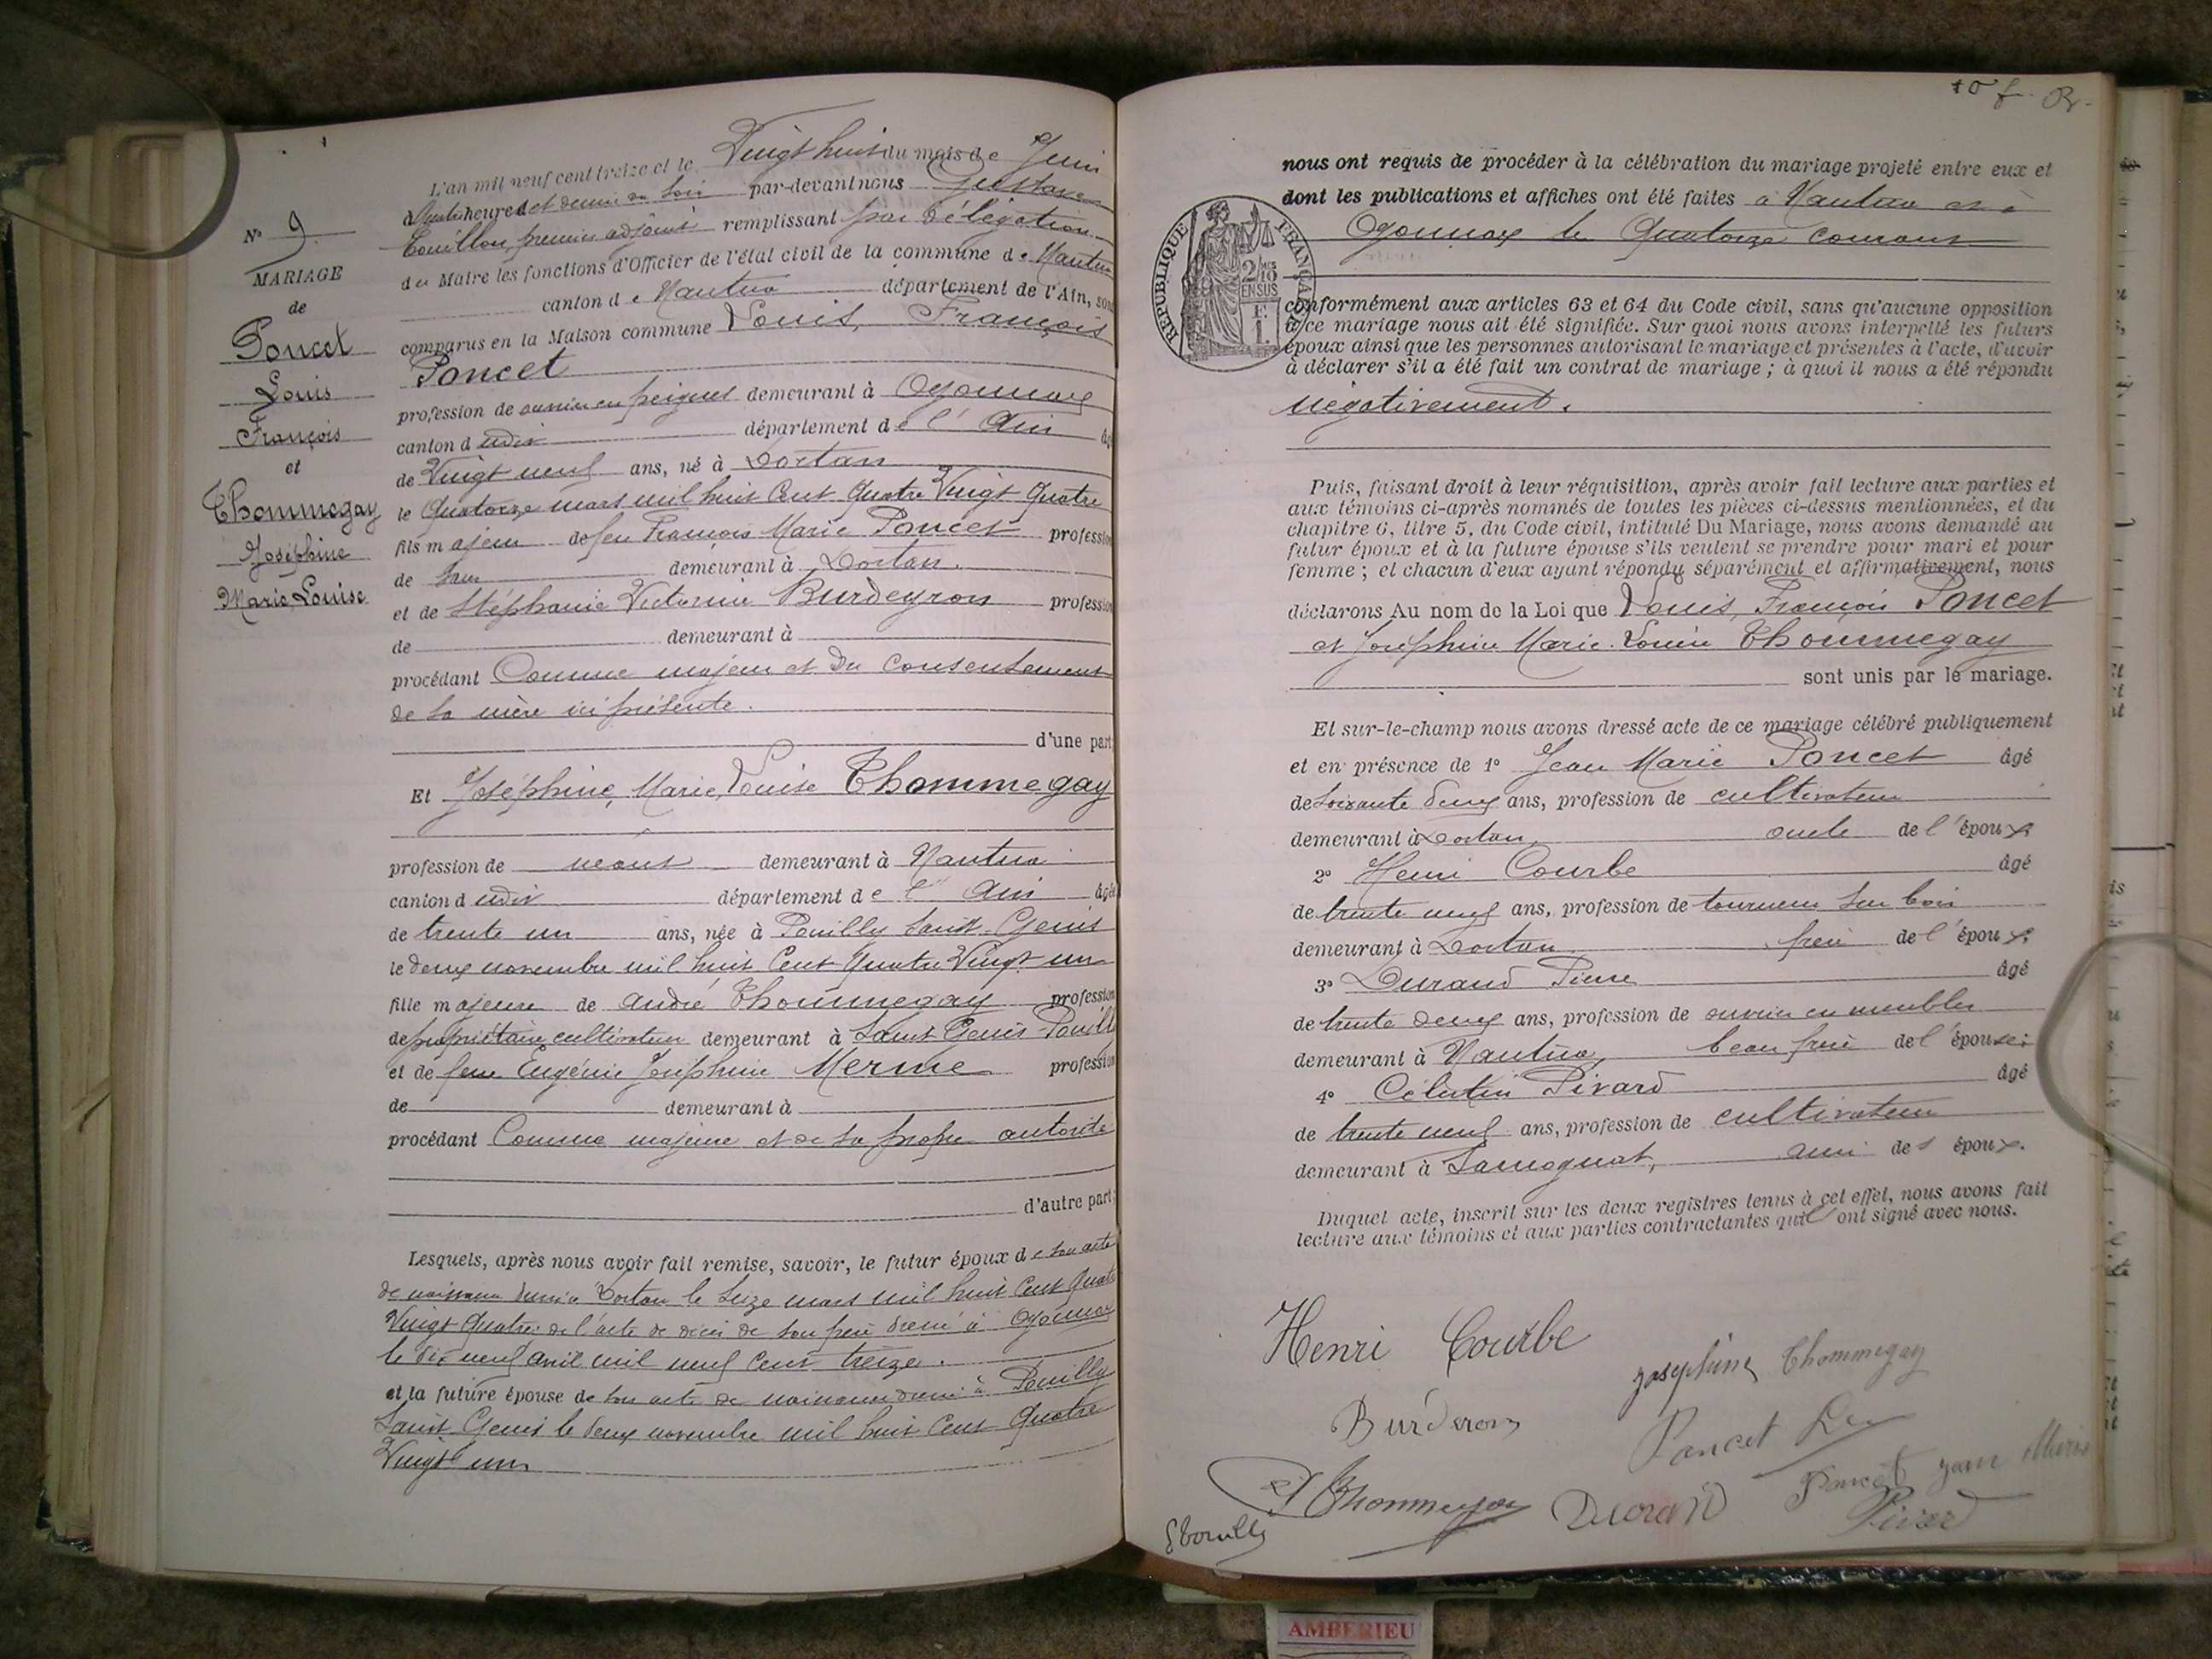 N° 9
MARIAGE
de
Poncet
Louis
François
et
Thommegay
Joséphine
Marie Louise
L'an mil neuf cent treize et le Vingt huit du mois de Juin
à quatre heures et demie du soir par-devant nous Gustave
Touillon, premier adjoint remplissant par délégation
du Maire les fonctions d'Officier de l'état civil de la commune de Nantua
canton de Nantua département de l'Ain, sont
comparus en la Maison commune Louis, François
Poncet
profession de ouvrier en peignes demeurant à Oyonnax
canton d udit département de l'Ain âgé
de Vingt neuf ans, né à Dortan
le Quatorze mars mil huit Cent Quatre Vingt Quatre
fils majeur de feu François Marie Poncet profession
de demeurant à Dortan.
et de Stéphanie Victorine Burdeyron profession
de demeurant à
procédant Comme majeur et du Consentement
de sa mère ici présente.
d'une part
Et Joséphine, Marie, Louise Thommegay
profession de neant demeurant à Nantua
canton d udit département de l'Ain âgée
de trente un ans, née à Pouilly Saint Genis
le deux novembre mil huit Cent Quatre Vingt un
fille majeure de André Thommegay profession
de propriétaire cultivateur demeurant à Saint Genis Pouill
et de feue Eugénie Joséphine Merme profession
de demeurant à
procédant Comme majeure et de sa propre autorité
d'autre part;
Lesquels, après nous avoir fait remise, savoir, le futur époux de son acte
de naissance dressé à Dortan le Seize mars mil huit Cent Quatre
Vingt Quatre; de l'acte de décès de son père dressé à Oyonnax
le dix neuf avril mil neuf Cent treize.
et la future épouse de son acte de naissance dressé à Pouilly
Saint Genis le deux novembre mil huit Cent Quatre
Vingt un
10 f. Br.
nous ont requis de procéder à la célébration du mariage projeté entre eux et
dont les publications et affiches ont été faites à Nantua et à
Oyonnax le Quatorze courant
RÉPUBLIQUE FRANÇAISE
2/10 EN SUS
F. 1.
conformément aux articles 63 et 64 du Code civil, sans qu'aucune opposition
à ce mariage nous ait été signifiée. Sur quoi nous avons interpellé les futurs
époux ainsi que les personnes autorisant le mariage et présentes à l'acte, d'avoir
à déclarer s'il a été fait un contrat de mariage ; à quoi il nous a été répondu
négativement.
Puis, faisant droit à leur réquisition, après avoir fait lecture aux parties et
aux témoins ci-après nommés de toutes les pièces ci-dessus mentionnées, et du
chapitre 6, titre 5, du Code civil, intitulé Du Mariage, nous avons demandé au
futur époux et à la future épouse s'ils veulent se prendre pour mari et pour
femme ; et chacun d'eux ayant répondu séparément et affirmativement, nous
déclarons Au nom de la Loi que Louis, François Poncet
et Joséphine Marie Louise Thommegay
sont unis par le mariage.
Et sur-le-champ nous avons dressé acte de ce mariage célébré publiquement
et en présence de 1° Jean Marie Poncet âgé
de soixante deux ans, profession de cultivateur
demeurant à Dortan, oncle de l'époux;
2° Henri Courbe âgé
de trente neuf ans, profession de tourneur sur bois
demeurant à Dortan frère de l'époux;
3° Durand Pierre âgé
de trente deux ans, profession de ouvrier en meubles
demeurant à Nantua, beau frère de l'épouse;
4° Célestin Pivard âgé
de trente neuf ans, profession de cultivateur
demeurant à Samognat, ami de s époux.
Duquel acte, inscrit sur les deux registres tenus à cet effet, nous avons fait
lecture aux témoins et aux parties contractantes qui ont signé avec nous.
Henri Courbe
Joséphine Thommegay
Burderon
Poncet Ls
Poncet Jean Marie
Thommegay
Durand
Pivard
GTouillon
AMBERIEU